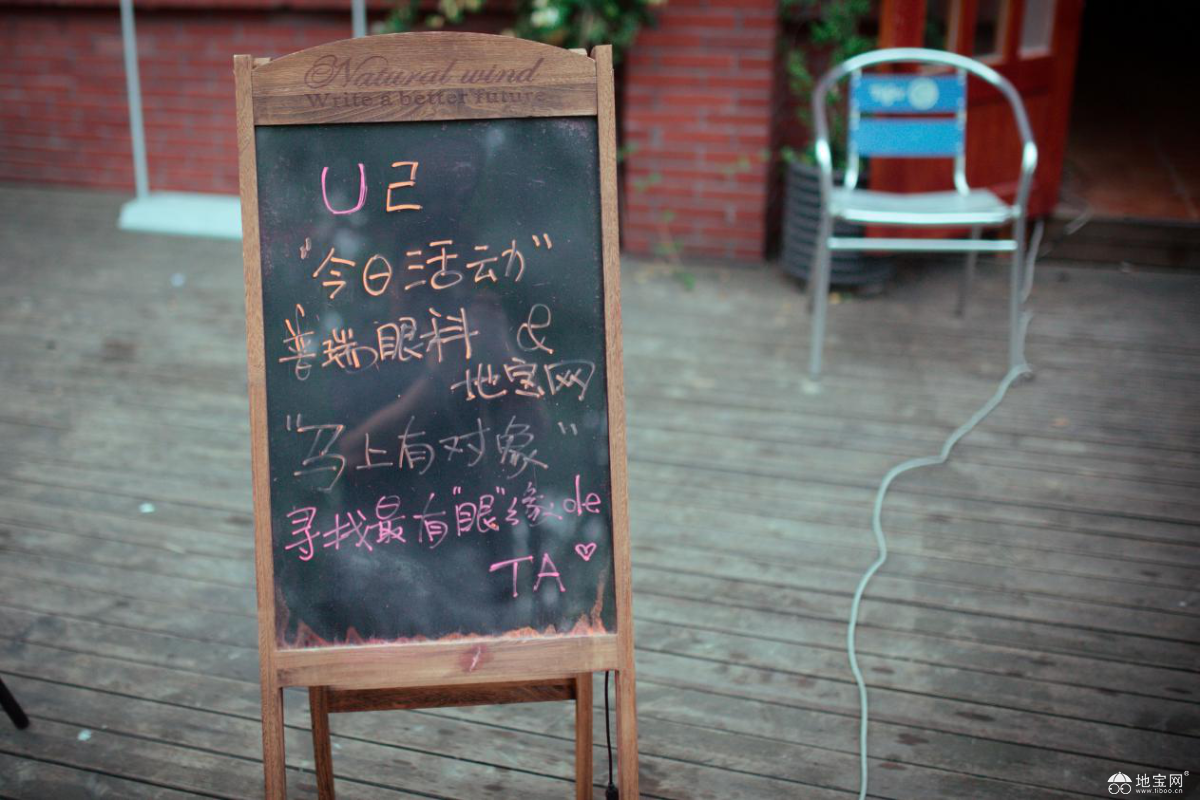 Natural wind
Write a better future
U己
"今日活动"
普瑞眼科 &
地宝网
"马上有对象"
寻找最有"眼"缘de
TA♡
地宝网®
www.tiboo.cn